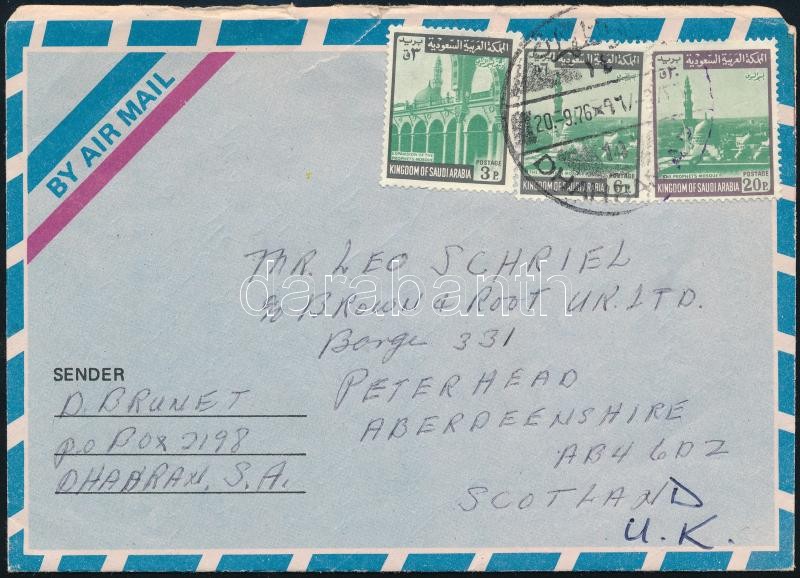 BY AIR MAIL
المملكة العربية السعودية
بريد
٣ق
EXPANSION OF THE
PROPHET'S MOSQUE
POSTAGE
3 P.
KINGDOM OF SAUDI ARABIA
المملكة العربية السعودية
POSTAGE
6 P.
KINGDOM OF SAUDI ARABIA
المملكة العربية السعودية
بريد
٢٠ق
PROPHET'S MOSQUE
POSTAGE
20 P.
KINGDOM OF SAUDI ARABIA
20.-9.76
DHAHRAN
MR. LEO SCHRIEL
c/o BROWN & ROOT U.K. LTD.
Barge 331
PETERHEAD
ABERDEENSHIRE
AB4 6DZ
SCOTLAND
U.K.
SENDER
D. BRUNET
P.O BOX 2198
DHAHRAN, S.A.
darabanth